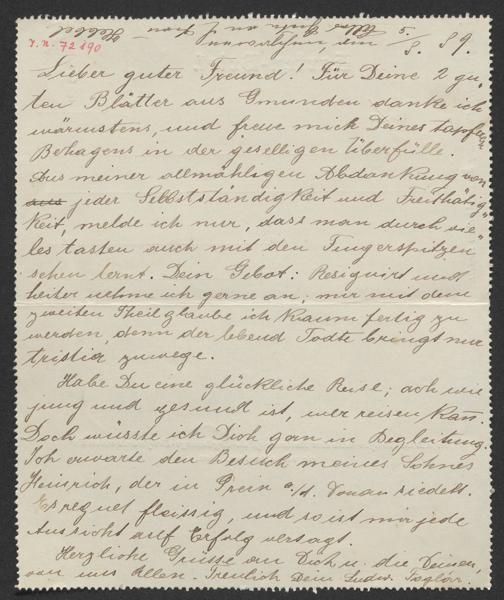 I.N. 72190
Alles Gute an Frau Hebbel
5./8. 89.
Lieber guter Freund! Für Deine 2 gu„
ten Blätter aus Gmunden danke ich
wärmstens, und freue mich Deines tapferen
Behagens in der geselligen Überfülle.
Aus meiner allmähligen Abdankung von
jeder Selbstständigkeit und Freithätig„
keit, melde ich nur, dass man durch vie„
les tasten auch mit den Fingerspitzen
sehen lernt. Dein Gebot: Resignirt und
heiter nehme ich gerne an; nur mit dem
zweiten Theil glaube ich kaum fertig zu
werden, denn der lebend Todte bringt nur
tristia zuwege.
Habe Du eine glückliche Reise; ach wie
jung und gesund ist, wer reisen kan.
Doch wüsste ich Dich gern in Begleitung.
Ich erwarte den Besuch meines Sohnes
Heinrich, der in Prein a/d. Donau siedelt.
Es regnet fleissig, und so ist mir jede
Aussicht auf Erfolg versagt.
Herzliche Grüsse an Dich u. die Deinen,
von uns Allen. Treulich Dein Ludw.